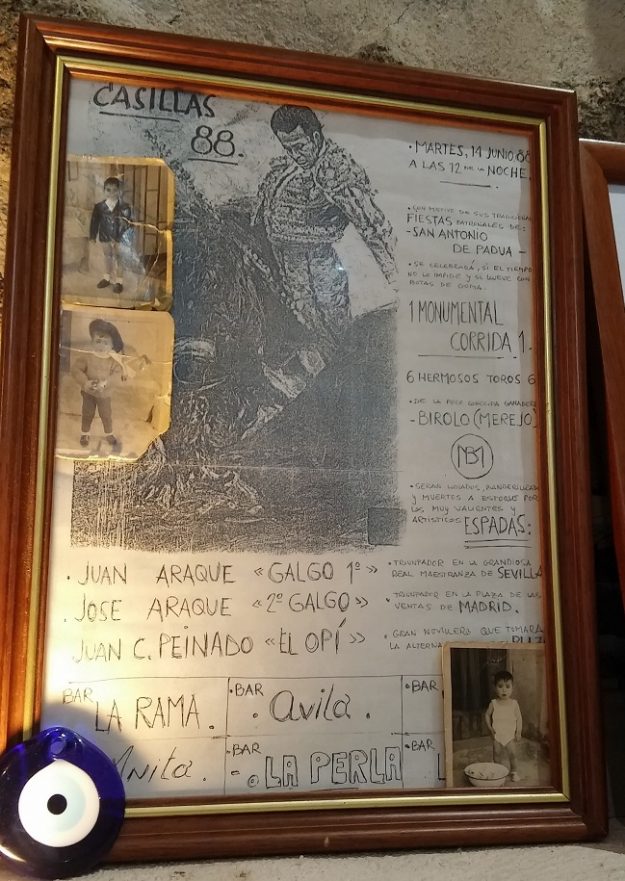 CASILLAS
88.
• MARTES, 14 JUNIO 88
A LAS 12 DE LA NOCHE.
• CON MOTIVO DE SUS TRADICIONALES
FIESTAS PATRONALES DE:
- SAN ANTONIO
DE PADUA -
• SE CELEBRARÁ, SI EL TIEMPO
NO LO IMPIDE Y SI LLUEVE CON
BOTAS DE GOMA.
1 MONUMENTAL
CORRIDA 1.
6 HERMOSOS TOROS 6
• DE LA MUY CONOCIDA GANADERÍA
- BIROLO (MEREJO)
• SERAN LIDIADOS, BANDERILLEADOS
Y MUERTOS A ESTOQUE POR
LOS MUY VALIENTES Y
ARTISTICOS ESPADAS:
• JUAN ARAQUE «GALGO 1º»
• TRIUNFADOR EN LA GRANDIOSA
REAL MAESTRANZA DE SEVILLA
. JOSE ARAQUE «2º GALGO»
• TRIUNFADOR EN LA PLAZA DE LAS
VENTAS DE MADRID.
. JUAN C. PEINADO «EL OPÍ»
• GRAN NOVILLERO QUE TOMARA
LA ALTERNA
BAR LA RAMA.
• BAR
. Avila .
• BAR
Anita.
• BAR
LA PERLA
• BAR